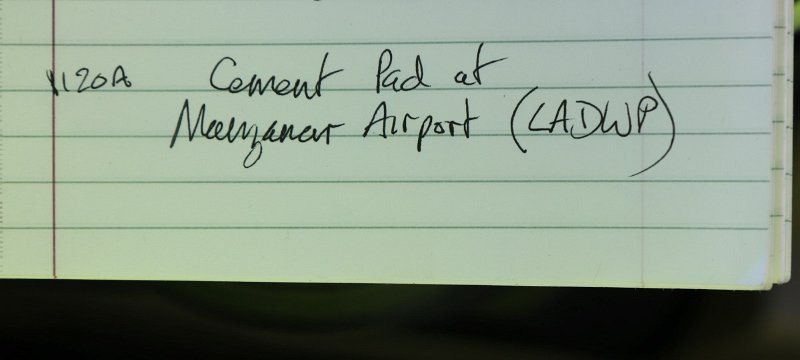 1120A Cement Pad at
Manzanar Airport (LADWP)